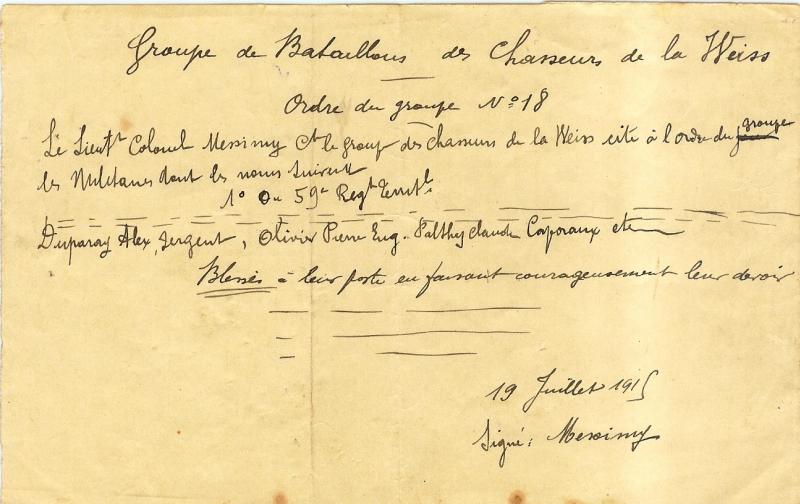 Groupe de Bataillons des Chasseurs de la Weiss
Ordre du groupe N° 18
Le Lieutt Colonel Messimy Ct le group des chasseurs de la Weiss cite à l'ordre du groupe
les Militaires dont les noms suivent
1° Du 59e Regt Territle
Duparay Alex, Sergent, Olivier Pierre Eug. Palthy Claude Caporaux etc
Blessés à leur poste en faisant courageusement leur devoir
19 Juillet 1915
Signé: Messimy